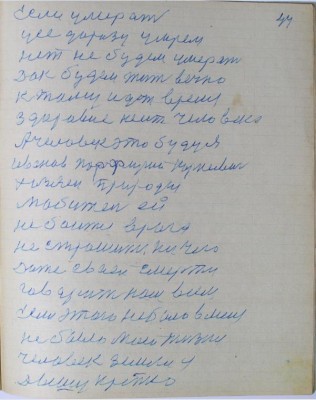 44
Если умерат
усе даразу умрем
нет не будем умерат
Так будем жит вечно
к таму идет время
здаравие неит человека
А человек это буду я
иванов порфирий корнеевич
хозяен природы
Любител ей
не боится врага
не страшится ни чего
Даже своей смерти
говарит нам всем
если этого небыло в мени
не было моей жизни
человек земли я
Дышу крепко